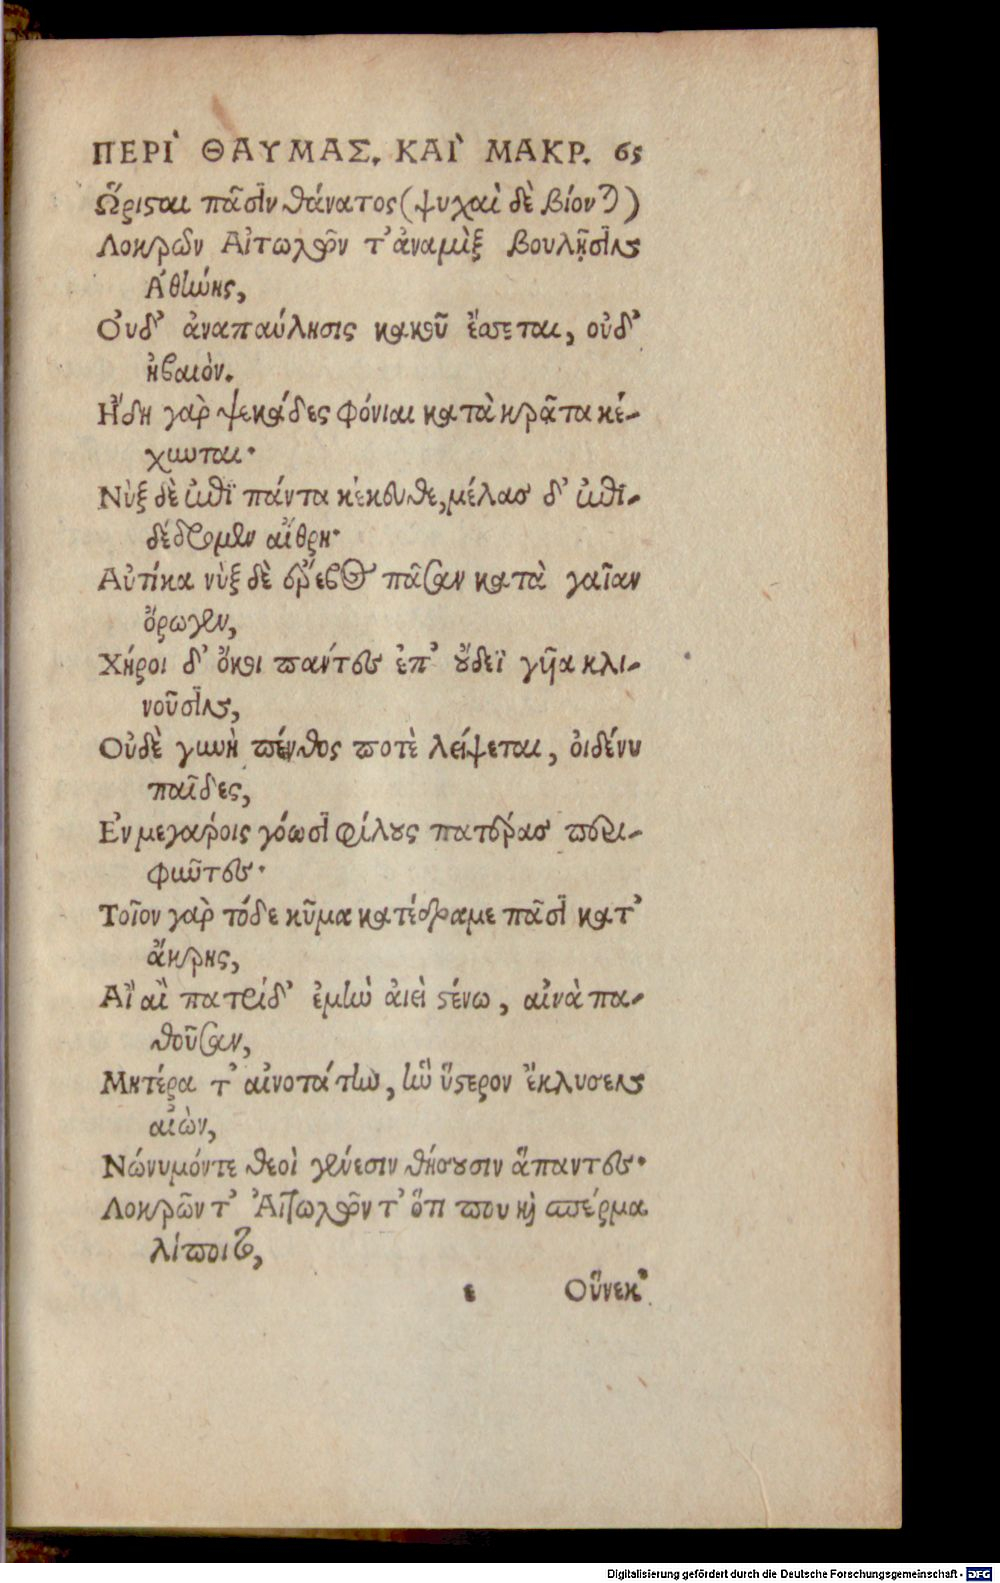 ΠΕΡΙ ̀ ΘΑΥΜΑΣ. ΚΑΙ ̀ ΜΑΚΡ. 65
Ὥρισται πᾶσιν θάνατος (ψυχαὶ δὲ βίον)
Λοκρῶν Αἰτωλῶν τ' ἀναμὶξ βουλῇσιν
Ἀθήνης,
Οὐδ' ἀναπαύλησις κακοῦ ἔσσεται, οὐδ'
ἠβαιὸν.
Ἤδη γὰρ ψεκάδες φόνιαι κατὰ κρᾶτα κέ-
χυνται·
Νὺξ δὲ πάντα κέκευθε, μέλας δ' ἐπι-
δέδρομεν αἴθρη·
Αὐτίκα νὺξ δὲ ἔρεβος πᾶσαν κατὰ γαῖαν
ὄρωρεν,
Χῆροι δ' οἶκοι πάντες ἐπ' οὔδεϊ γυῖα κλι-
νοῦσιν,
Οὐδὲ γυνὴ πένθος ποτὲ λείψεται, οἱδένυ
παῖδες,
Ἐν μεγάροις γόωσι φίλους πατέρας περι-
φύντες·
Τοῖον γὰρ τόδε κῦμα κατέδραμε πᾶσι κατ'
ἄκρης,
Αἲ αἲ πατρίδ' ἐμὴν ἀιεὶ στένω, αἰνὰ πα-
θοῦσαν,
Μητέρα τ' αἰνοτάτην, ἣν ὕστερον ἔκλυσεν
αἰὼν,
Νώνυμόντε θεοὶ γένεσιν θήσουσιν ἅπαντες·
Λοκρῶν τ' Αἰτωλῶν τ' ὅπ που καὶ σπέρμα
λίποιτο,
ε Οὕνεκ'
Digitalisierung gefördert durch die Deutsche Forschungsgemeinschaft - DFG